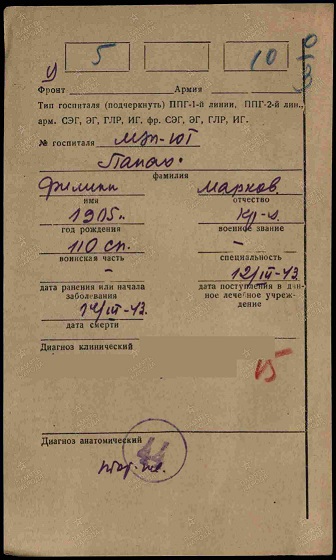 5 10
Фронт Армия
Тип госпиталя (подчеркнуть) ППГ-1-й линии, ППГ-2-й лин.,
арм. СЭГ, ЭГ, ГЛР, ИГ. фр. СЭГ, ЭГ, ГЛР, ИГ.
№ госпиталя
фамилия
Филипп Марков.
имя отчество
1905г. кр-ц.
год рождения военное звание
110 сп. –
воинская часть специальность
– 12/III-43
дата ранения или начала заболевания
дата поступления в данное лечебное учреждение
14/III-43.
дата смерти
Диагноз клинический
15
Диагноз анатомический
44